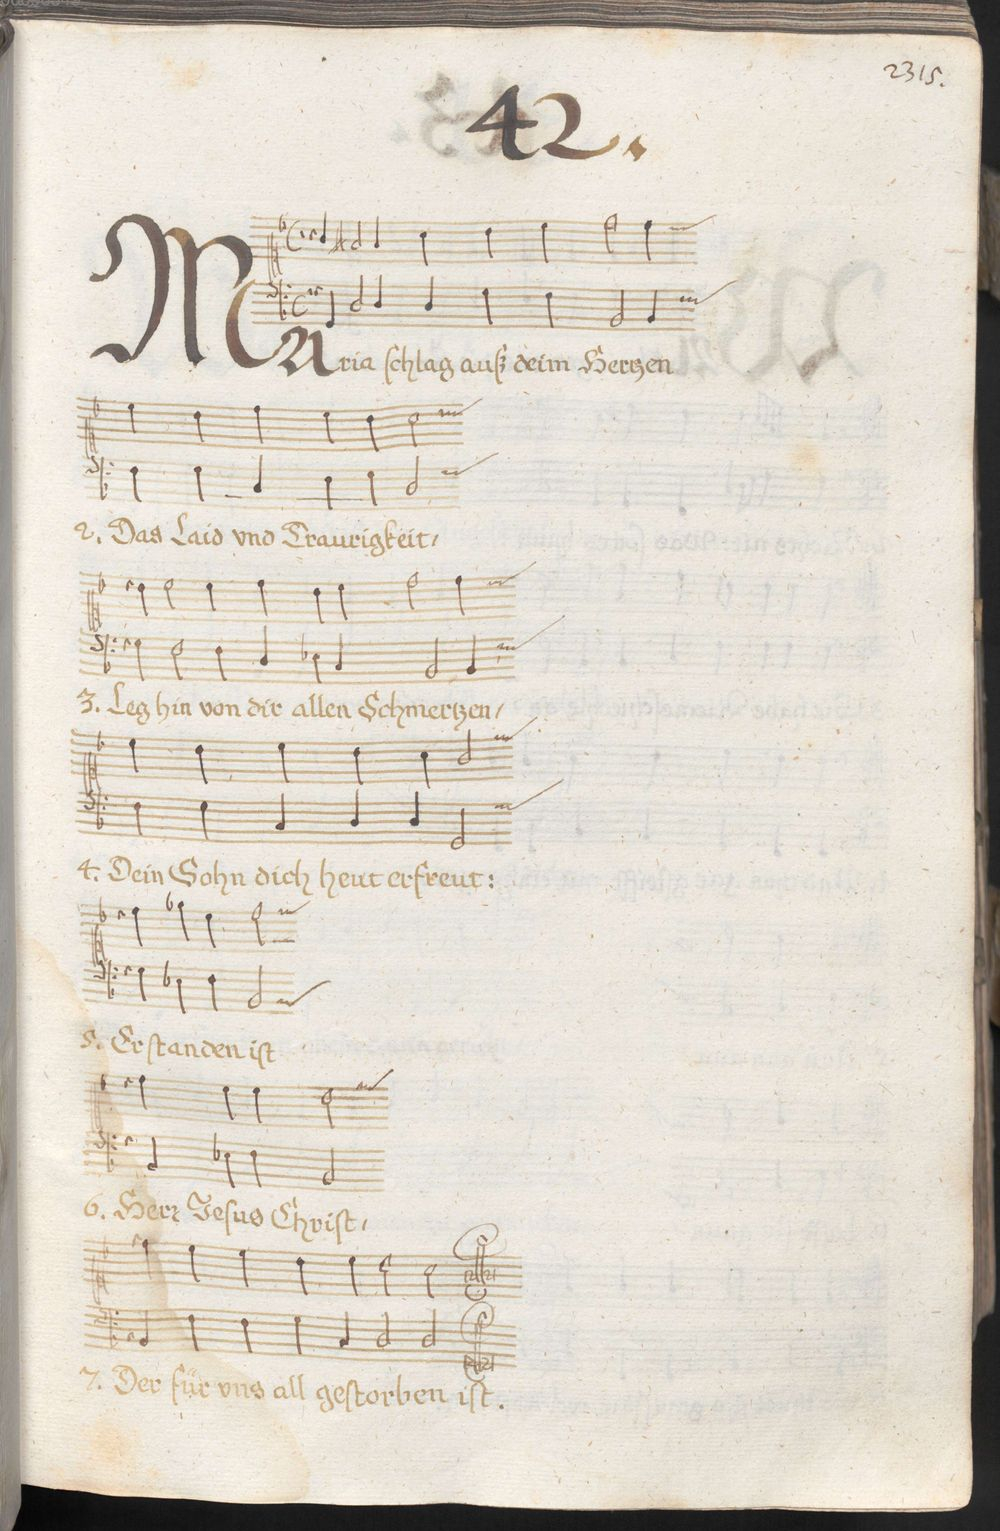 2315.
42.
Maria schlag auß deim Hertzen
2. Das Laid vnd Traurigkeit,
3. Leg hin von dir allen Schmertzen,
4. Dein Sohn dich heut erfreut:
5. Erstanden ist
6. Herr Jesus Christ,
7. Der für vns all gestorben ist.